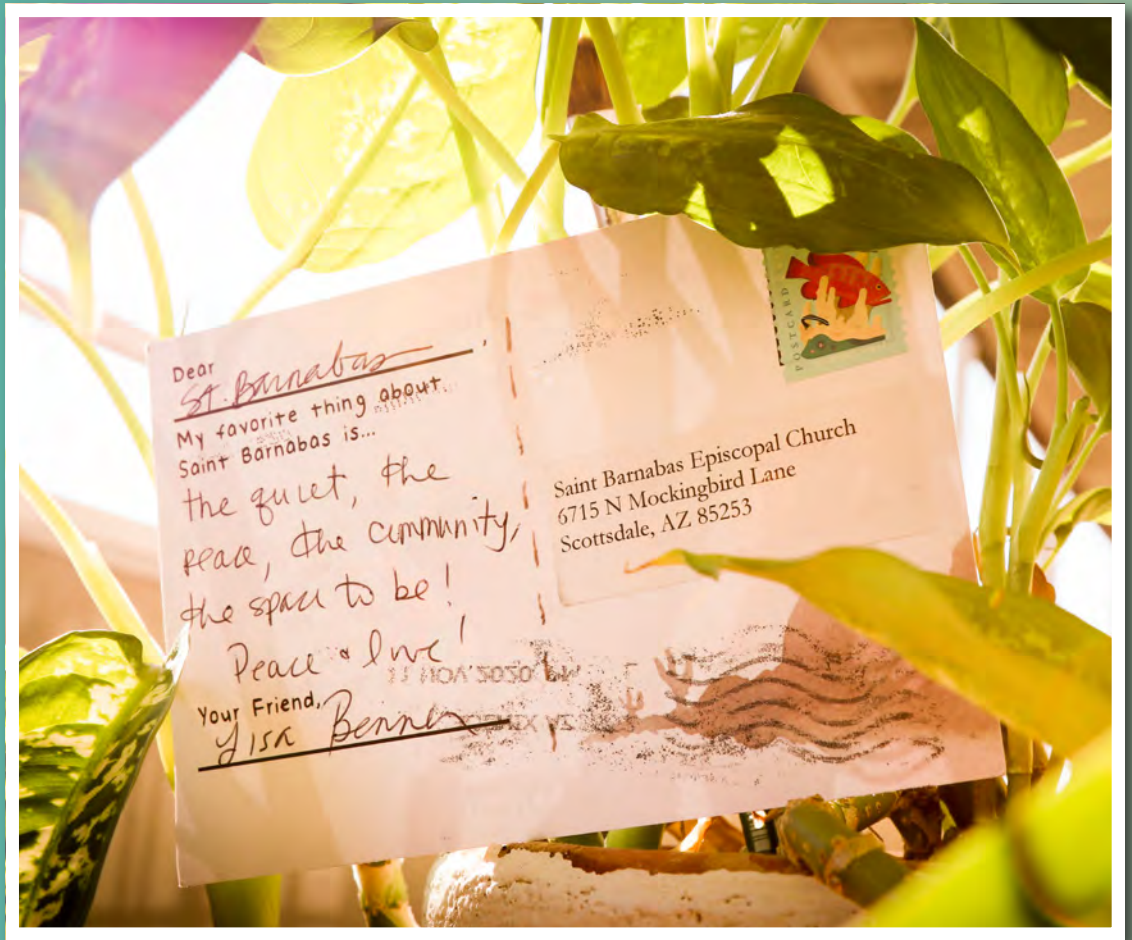 Dear
St. Barnabas,
My favorite thing about
Saint Barnabas is...
the quiet, the
peace, the community,
the space to be!
Peace & love!
Your Friend,
Lisa
POSTCARD
Saint Barnabas Episcopal Church
6715 N Mockingbird Lane
Scottsdale, AZ 85253